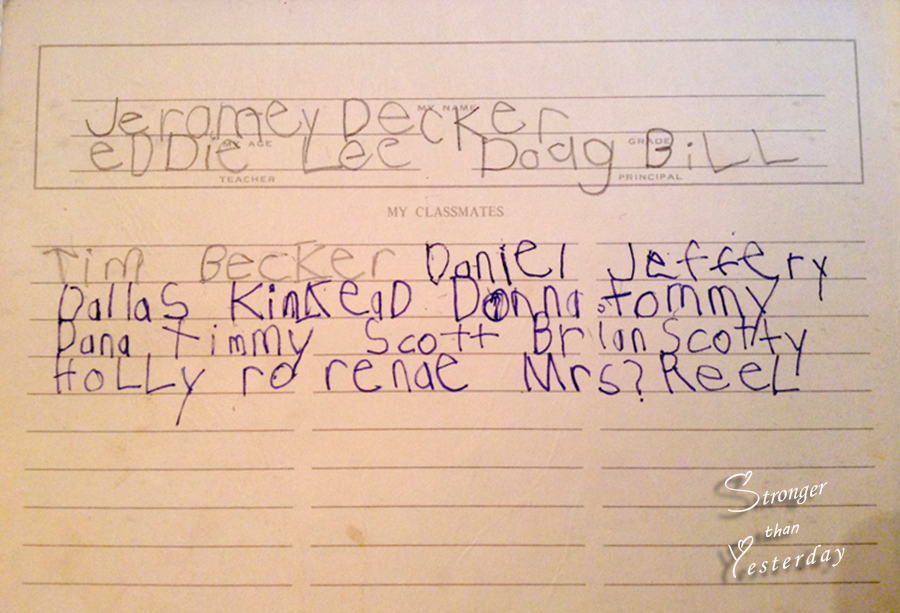 MY NAME
Jeramey Decker
MY AGE GRADE
eDDie Lee Doug BiLL
TEACHER PRINCIPAL
MY CLASSMATES
Tim Becker Daniel Jeffery
Dallas KinKeaD Donna tommy
Dana Timmy Scott Brian Scotty
HoLLy ro renae Mrs? ReeL
Stronger
than
Yesterday